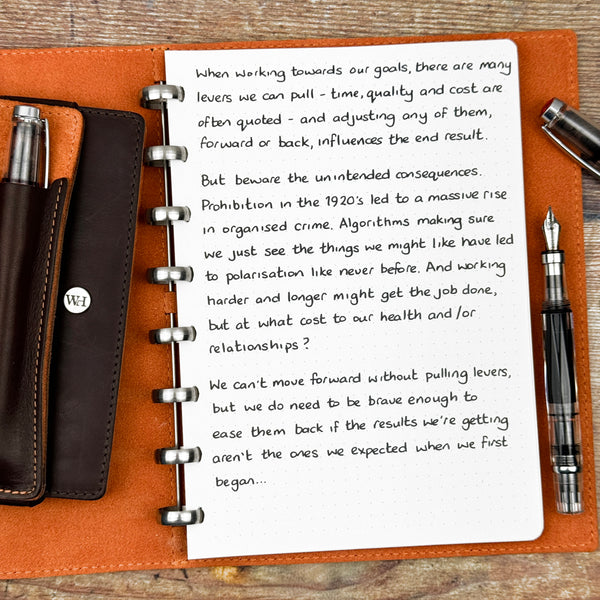 When working towards our goals, there are many
levers we can pull - time, quality and cost are
often quoted - and adjusting any of them,
forward or back, influences the end result.
But beware the unintended consequences.
Prohibition in the 1920's led to a massive rise
in organised crime. Algorithms making sure
we just see the things we might like have led
to polarisation like never before. And working
harder and longer might get the job done,
but at what cost to our health and/or
relationships?
We can't move forward without pulling levers,
but we do need to be brave enough to
ease them back if the results we're getting
aren't the ones we expected when we first
began...
WH